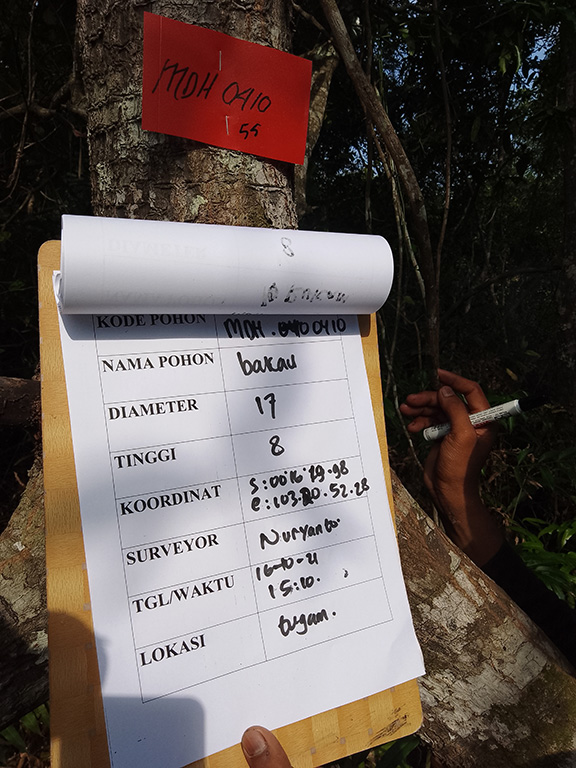 MDH 0410
55
8
bakau
KODE POHON MDH . 0410 0410
NAMA POHON bakau
DIAMETER 17
TINGGI 8
KOORDINAT S:00 16 79.98
e:103.20.52.28
SURVEYOR Nuryanto
TGL/WAKTU 16-10-21
15:10.
LOKASI